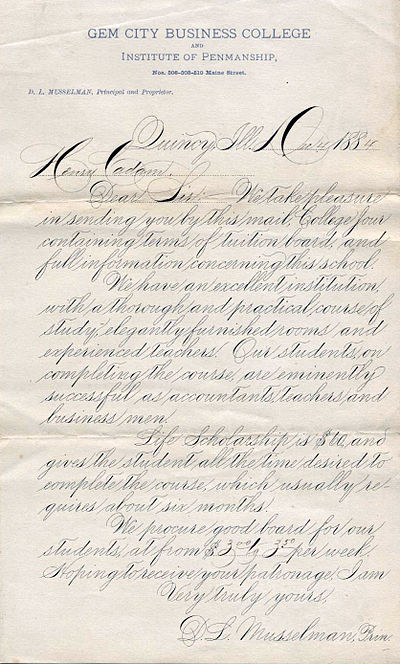 GEM CITY BUSINESS COLLEGE
AND
INSTITUTE OF PENMANSHIP,
Nos. 506-508-510 Maine Street.
D. L. MUSSELMAN, Principal and Proprietor.
Quincy, Ill., 1884
Henry Cadam.
Dear Sir:— We take pleasure
in sending you by this mail, College Jour
containing terms of tuition board, and
full information concerning this school.
We have an excellent institution,
with a thorough and practical course of
study, elegantly furnished rooms and
experienced teachers. Our students, on
completing the course, are eminently
successful as accountants, teachers and
business men.
Life Scholarship is and
gives the student all the time desired to
complete the course, which usually re-
quires about six months.
We procure good board for our
students, at from $3.00 to 3.50 per week.
Hoping to receive your patronage, I am
Very truly yours,
D. L. Musselman, Prin.